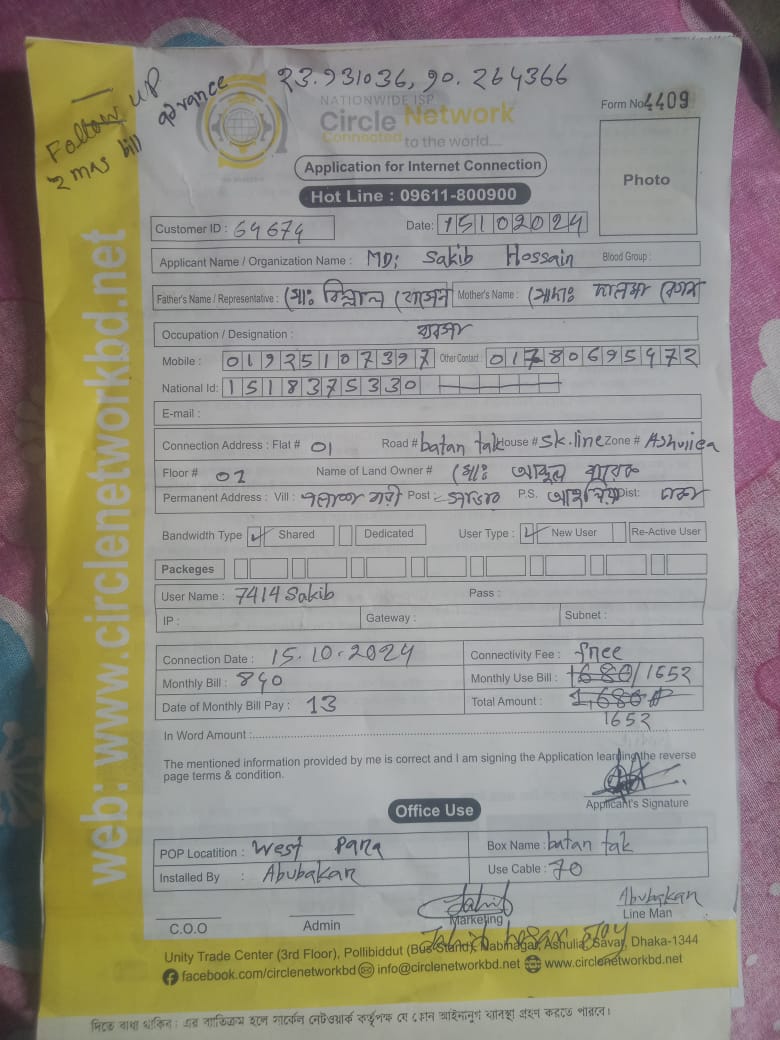 23.931036, 90.264366
Follow up
2 mas bill advance
NATIONWIDE ISP
Circle Network
Connected to the world....
Form No 4409
Application for Internet Connection
Photo
Hot Line : 09611-800900
Customer ID : 64674
Date: 15102024
Applicant Name / Organization Name : MD: Sakib Hossain Blood Group :
Father's Name / Representative : মোঃ বিল্লাল হোসেন Mother's Name : মোছাঃ সালমা বেগম
Occupation / Designation : ব্যবসা
Mobile : 01925107397 Other Contact : 01780695972
National Id: 1518375330
E-mail :
Connection Address : Flat # 01 Road # batan tak House # SK.line Zone # Ashuliea
Floor # 01 Name of Land Owner # মোঃ
Permanent Address : Vill : Post : P.S. Dist: ঢাকা
Bandwidth Type Shared Dedicated User Type : New User Re-Active User
Packeges
User Name : 7414 Sakib Pass :
IP : Gateway : Subnet :
Connection Date : 15.10.2024 Connectivity Fee : free
Monthly Bill : 840 Monthly Use Bill : 1680/1652
Date of Monthly Bill Pay : 13 Total Amount : 1,680
1652
In Word Amount :
The mentioned information provided by me is correct and I am signing the Application learding the reverse
page terms & condition.
Applicant's Signature
Office Use
POP Locatition : West Para Box Name : batan tak
Installed By : Abubakar Use Cable : 70
C.O.O Admin Marketing Abubakar
Line Man
Unity Trade Center (3rd Floor), Pollibiddut (Bus Stand), Nabinagar, Ashulia, Savar, Dhaka-1344
facebook.com/circlenetworkbd info@circlenetworkbd.net www.circlenetworkbd.net
web: www.circlenetworkbd.net
দিতে বাধ্য থাকিব। এর ব্যতিক্রম হলে সার্কেল নেটওয়ার্ক কর্তৃপক্ষ যে কোন আইনানুগ ব্যবস্থা গ্রহণ করতে পারবে।